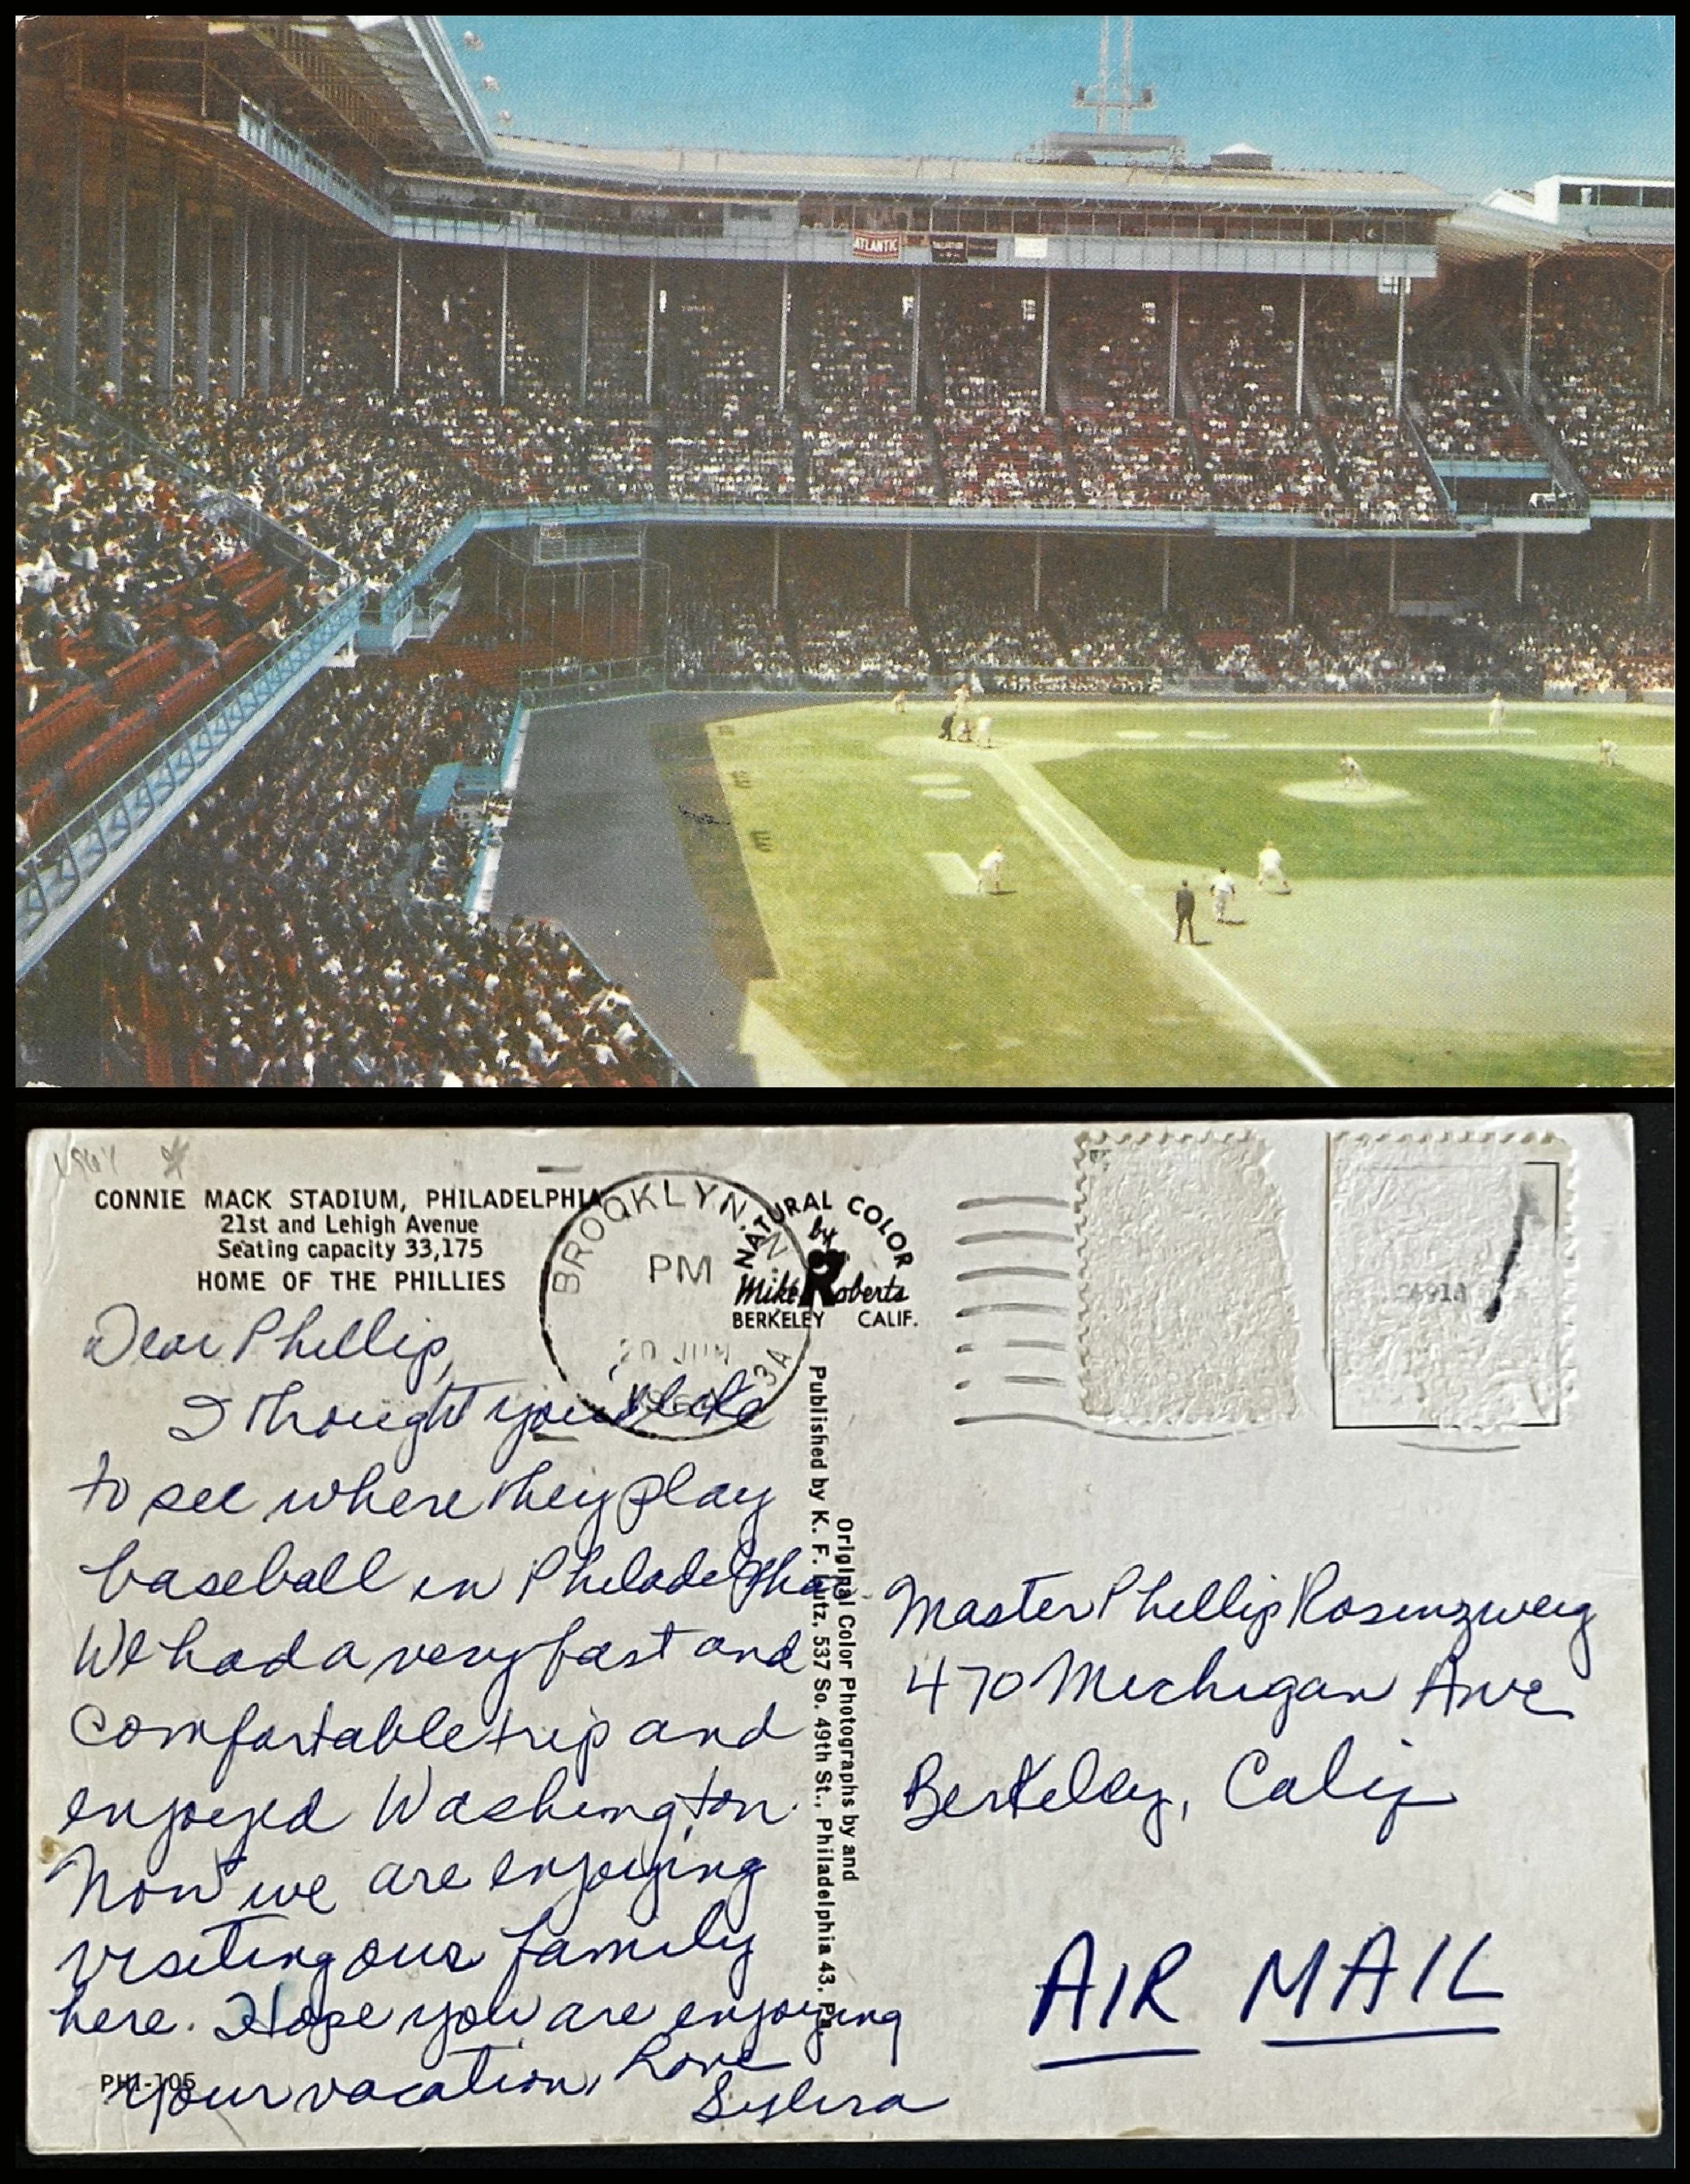 ATLANTIC
BALLANTINE
1964
CONNIE MACK STADIUM, PHILADELPHIA
21st and Lehigh Avenue
Seating capacity 33,175
HOME OF THE PHILLIES
BROOKLYN, N
PM
20 JUN
3A
NATURAL COLOR
by
Mike Roberts
BERKELEY CALIF.
C4914
Dear Phillip,
I thought you'd like
to see where they play
baseball in Philadelphia.
We had a very fast and
comfortable trip and
enjoyed Washington.
Now we are enjoying
visiting our family
here. Hope you are enjoying
your vacation, Love
Sylvia
PHI-105
Original Color Photographs by and
Published by K. F. Lutz, 537 So. 49th St., Philadelphia 43, Pa.
Master Phillip Rosenzweig
470 Michigan Ave
Berkeley, Calif
AIR MAIL